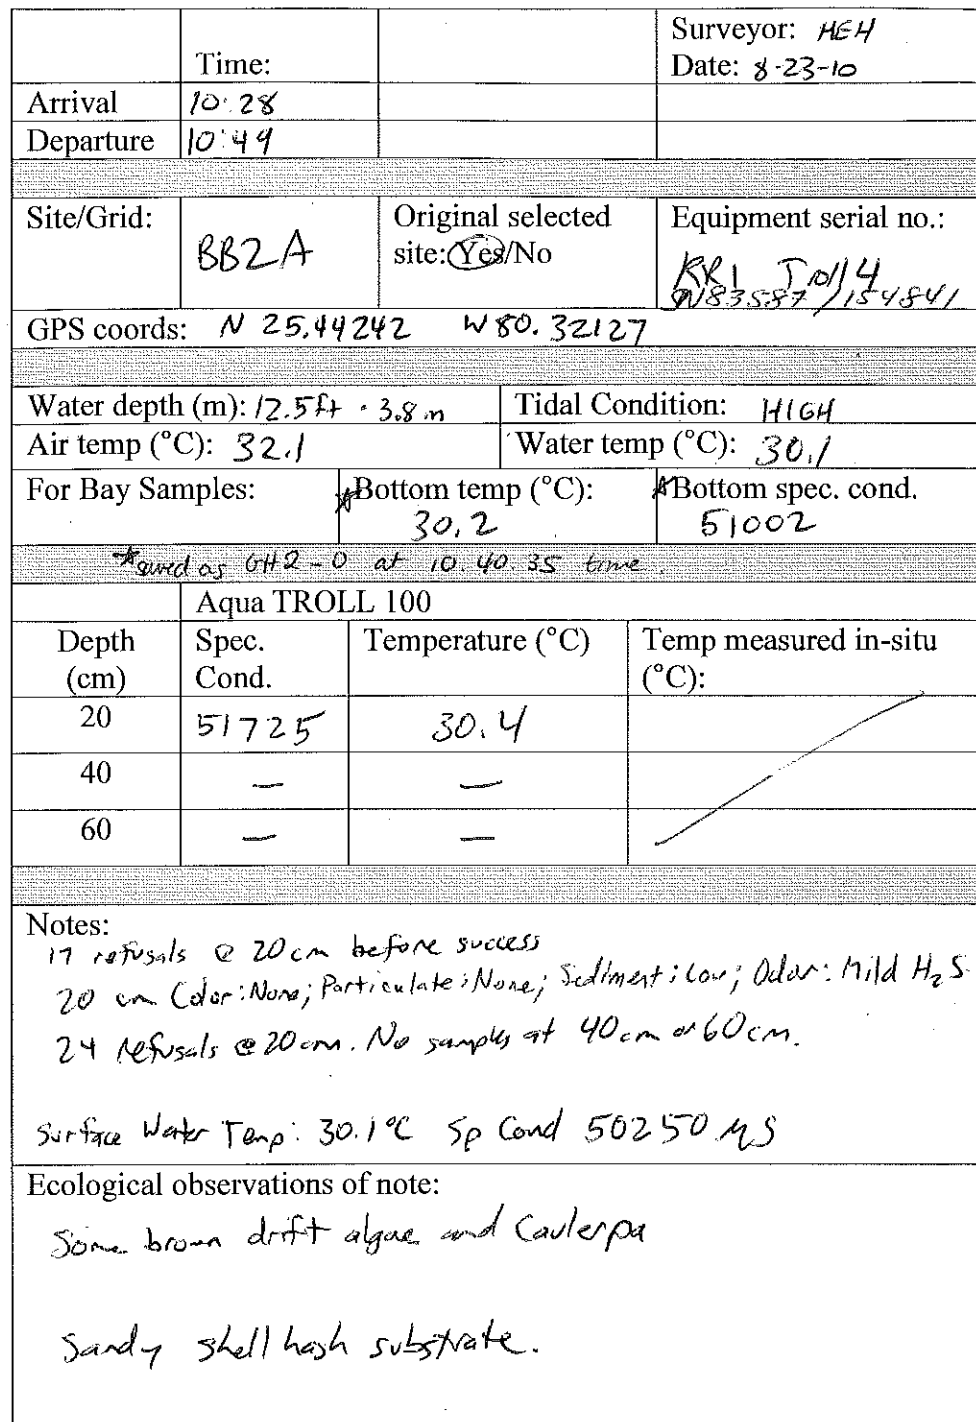 Surveyor: HEH
Time: Date: 8-23-10
Arrival 10:28
Departure 10:49
Site/Grid: BB2A Original selected site: Yes/No Equipment serial no.:
KR1 Troll 4
SN83587/154841
GPS coords: N 25.44242 W 80.32127
Water depth (m): 12.5ft · 3.8m Tidal Condition: HIGH
Air temp (°C): 32.1 Water temp (°C): 30.1
For Bay Samples: *Bottom temp (°C): 30.2 *Bottom spec. cond. 51002
*saved as GH2-0 at 10:40:35 time.
Aqua TROLL 100
Depth (cm) Spec. Cond. Temperature (°C) Temp measured in-situ (°C):
20 51725 30.4
40 — —
60 — —
Notes:
17 refusals @ 20cm before success
20 cm Color: None; Particulate: None; Sediment: Low; Odor: Mild H₂S
24 refusals @ 20cm. No samples at 40cm or 60cm.
Surface Water Temp: 30.1°C Sp Cond 50250 µS
Ecological observations of note:
Some brown drift algae and Caulerpa
Sandy shell hash substrate.